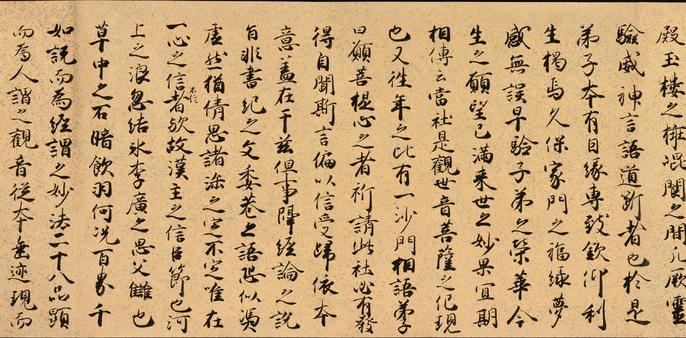 殿玉楼之閣之間凡厥靈
驗威神言語道断者也於是
弟子本有因縁専致欽仰利
生掲焉久保家門之福縁夢
感無誤早驗子弟之榮華今
生之願望已満来世之妙果宜期
相傳云當社是觀世音菩薩之化現
也又往年之比有一沙門相語弟子
曰願菩提心之者祈請此社必有發
得自聞斯言偏以信受歸依本
意蓋在于茲但事障經論之説
自非書紀之文委巷之語恐似憑
虚然猶倩思諸法之定不定唯在
一心之信不信者歟故漢主之信臣節也河
上之浪忽結氷李廣之思父讎也
草中之石暗飲羽何况百界千
如説而為經謂之妙法二十八品顕
而為人謂之觀音従本垂迹現而